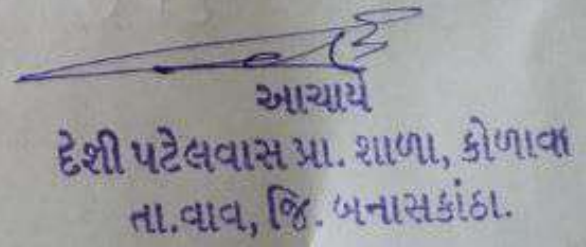 આચાર્ય
દેશી પટેલવાસ પ્રા. શાળા, કોળાવા
તા.વાવ, જિ. બનાસકાંઠા.